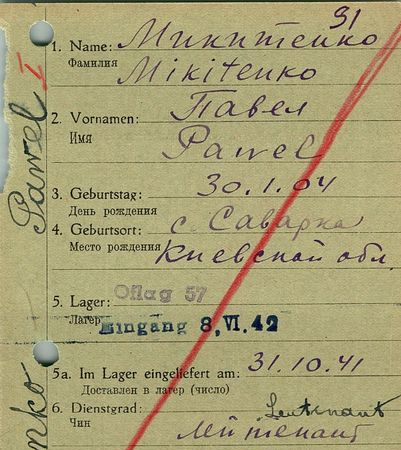 91
1. Name: Микитенко
Фамилия Mikitenko
2. Vornamen: Павел
Имя Pawel
3. Geburtstag: 30.1.04
День рождения
4. Geburtsort: с. Саварка
Место рождения Киевской обл.
5. Lager: Oflag 57
Лагерь Eingang 8. VI. 42
5a. Im Lager eingeliefert am: 31.10.41
Доставлен в лагер (число)
6. Dienstgrad: Leutenant
Чин лейтенант
Pawel
nko